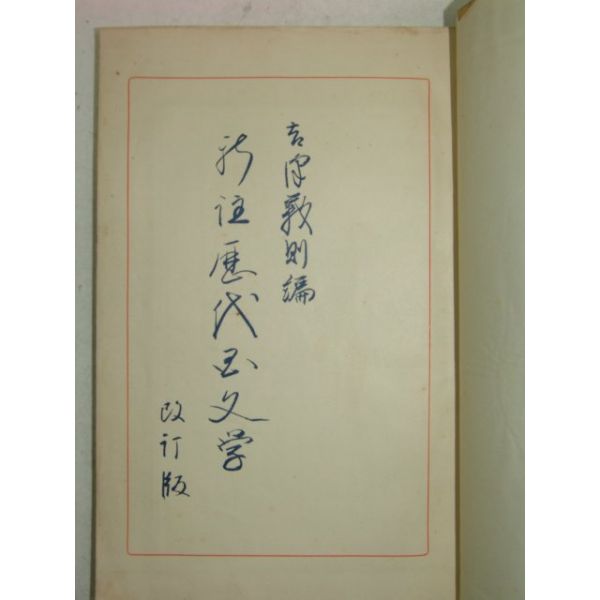 吉澤義則編
新註歴代国文学
改訂版